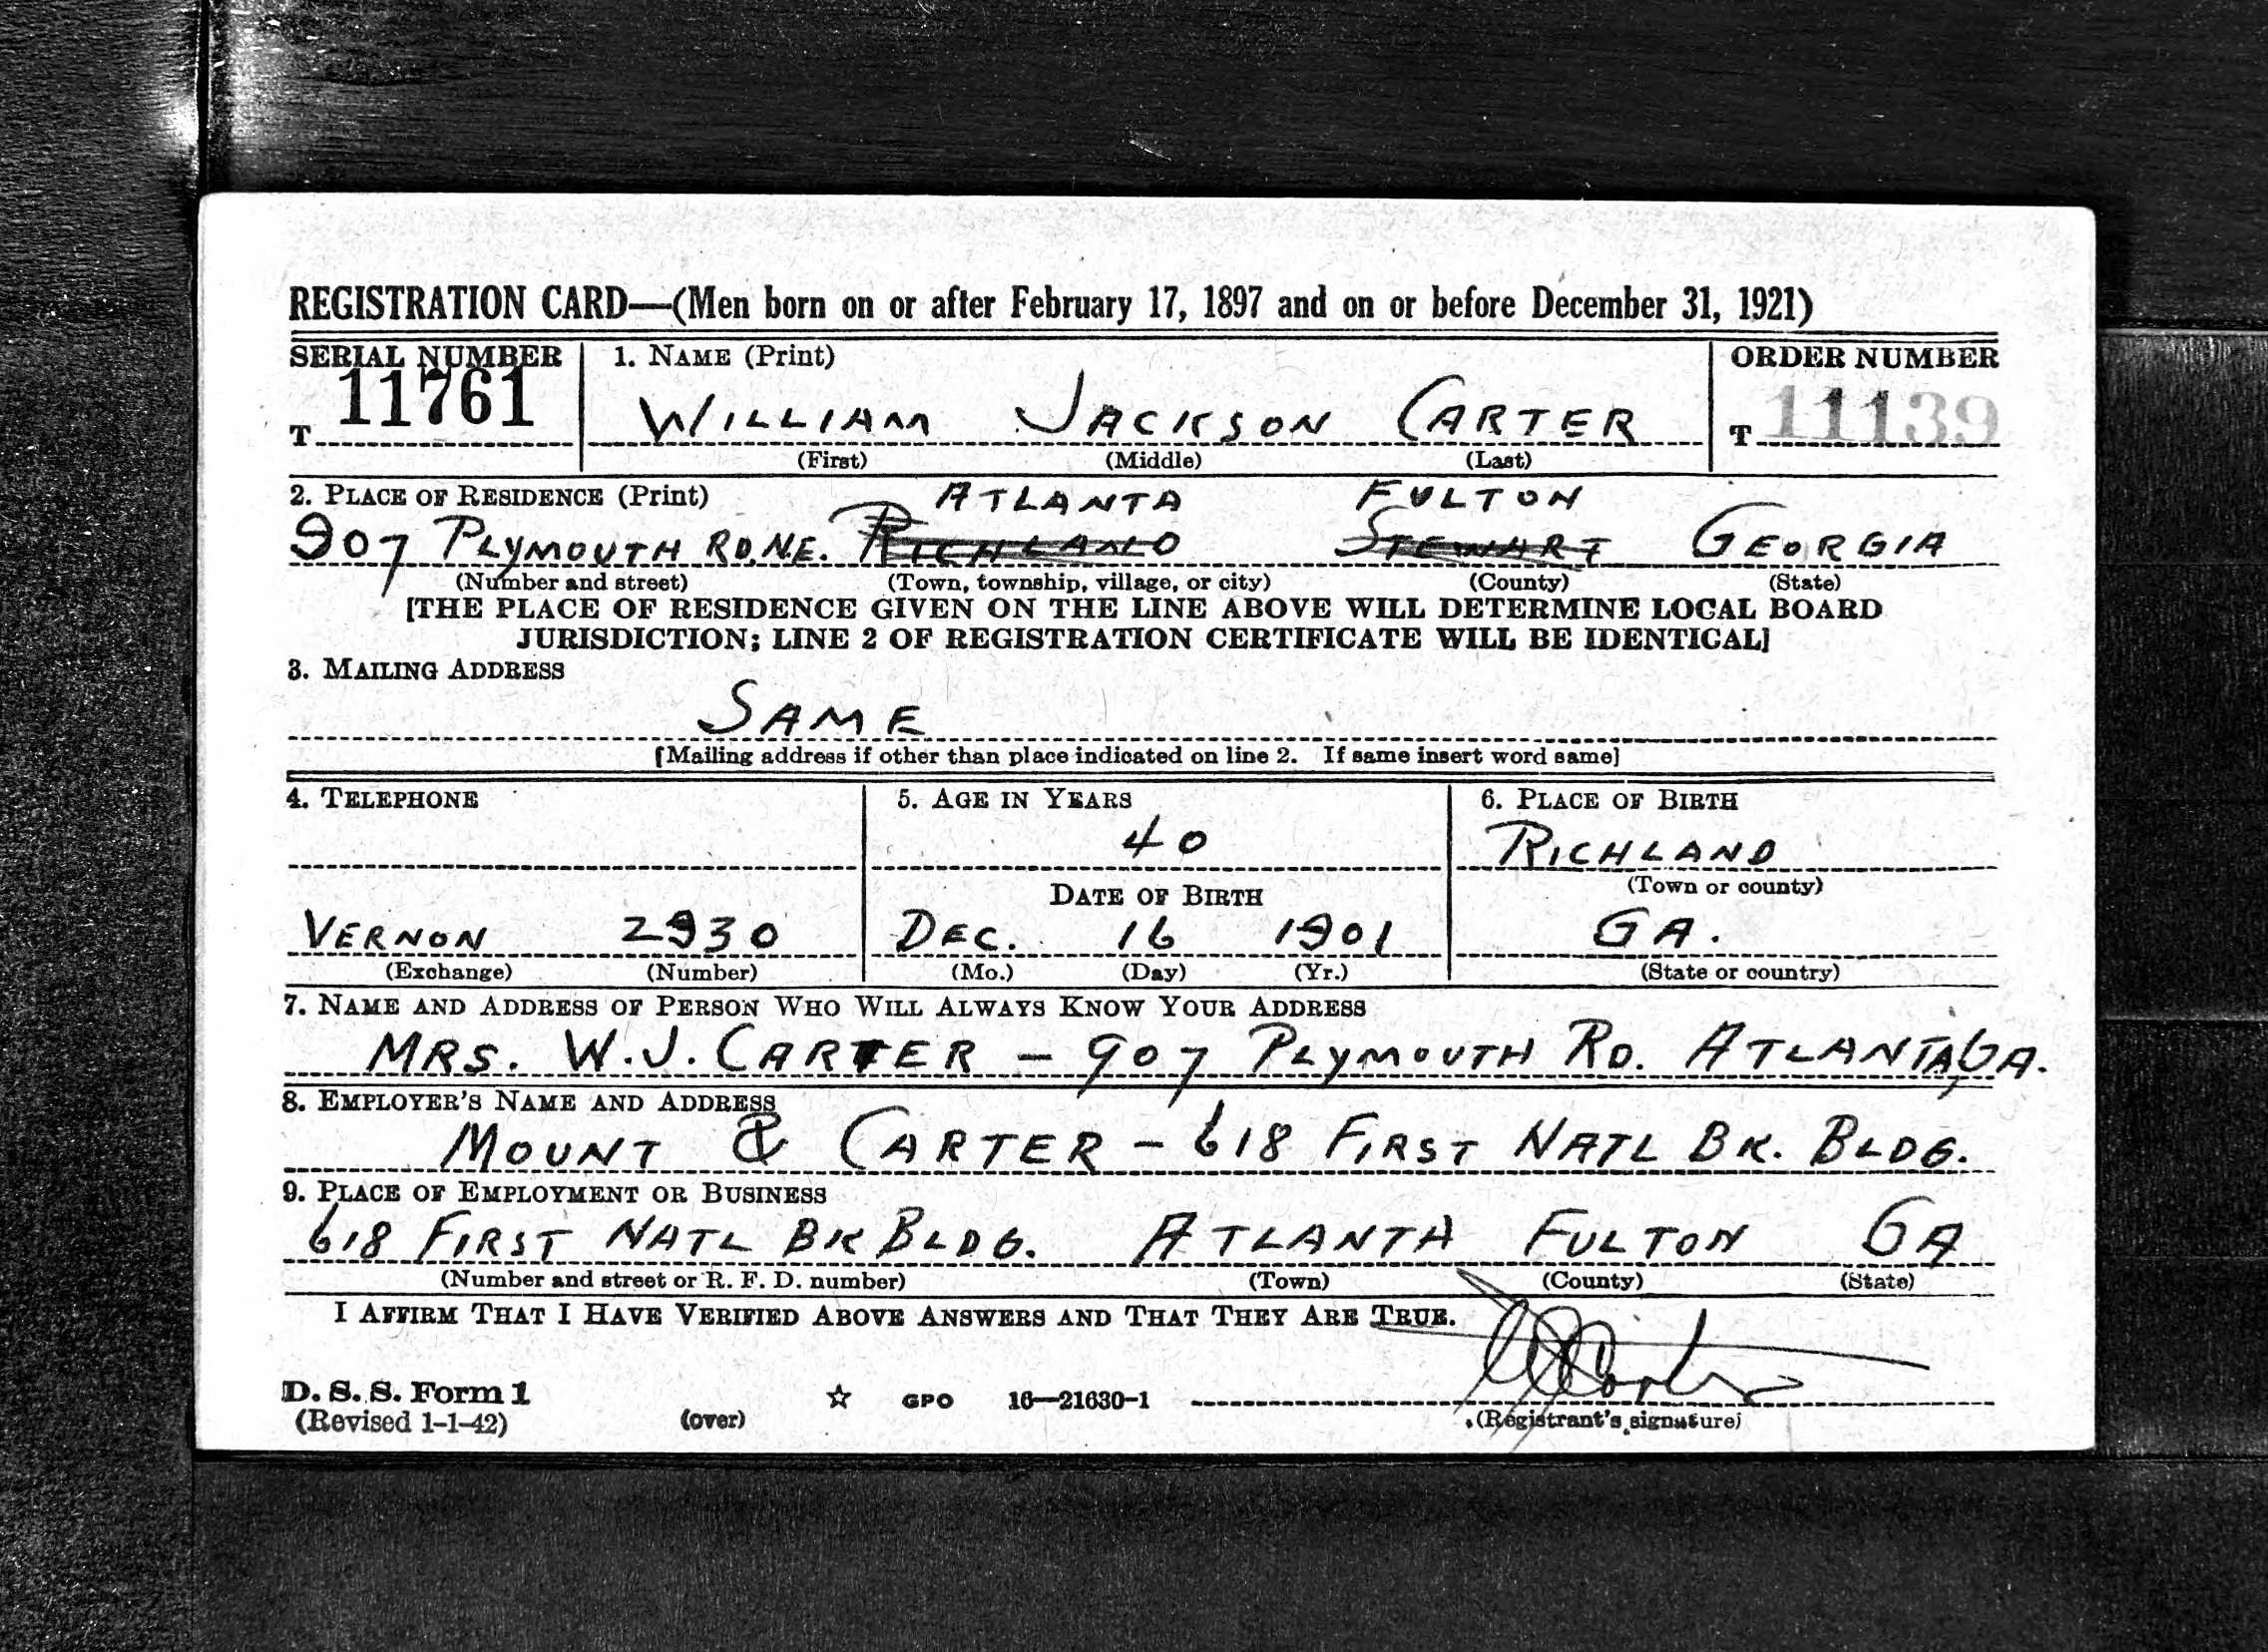 REGISTRATION CARD—(Men born on or after February 17, 1897 and on or before December 31, 1921)
SERIAL NUMBER 1. NAME (Print) ORDER NUMBER
T 11761 WILLIAM JACKSON CARTER T 11139
(First) (Middle) (Last)
2. PLACE OF RESIDENCE (Print) ATLANTA FULTON
907 PLYMOUTH RD. N.E. RICHLAND STEWART GEORGIA
(Number and street) (Town, township, village, or city) (County) (State)
[THE PLACE OF RESIDENCE GIVEN ON THE LINE ABOVE WILL DETERMINE LOCAL BOARD
JURISDICTION; LINE 2 OF REGISTRATION CERTIFICATE WILL BE IDENTICAL]
3. MAILING ADDRESS
SAME
[Mailing address if other than place indicated on line 2. If same insert word same]
4. TELEPHONE 5. AGE IN YEARS 6. PLACE OF BIRTH
40 RICHLAND
DATE OF BIRTH (Town or county)
VERNON 2930 DEC. 16 1901 GA.
(Exchange) (Number) (Mo.) (Day) (Yr.) (State or country)
7. NAME AND ADDRESS OF PERSON WHO WILL ALWAYS KNOW YOUR ADDRESS
MRS. W.J. CARTER – 907 PLYMOUTH RD. ATLANTA, GA.
8. EMPLOYER'S NAME AND ADDRESS
MOUNT & CARTER – 618 FIRST NATL BK. BLDG.
9. PLACE OF EMPLOYMENT OR BUSINESS
618 FIRST NATL BK BLDG. ATLANTA FULTON GA
(Number and street or R. F. D. number) (Town) (County) (State)
I AFFIRM THAT I HAVE VERIFIED ABOVE ANSWERS AND THAT THEY ARE TRUE.
WJCarter
D. S. S. Form 1
(Revised 1-1-42) (over) ☆ GPO 16—21630-1 (Registrant's signature)